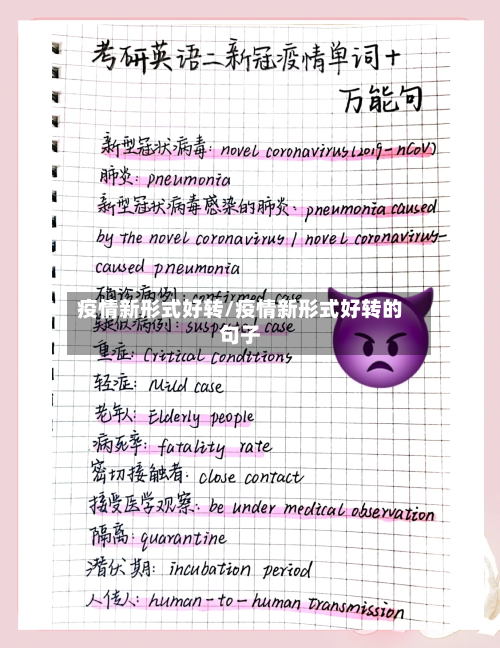 考研英语二新冠疫情单词+
万能句
新型冠状病毒: novel coronavirus(2019-nCoV)
肺炎: pneumonia
新型冠状病毒感染的肺炎: pneumonia caused
by the novel coronavirus / novel coronavirus-
caused pneumonia
确诊病例: confirmed case
疫情新形式好转/疫情新形式好转的
句子
疑似病例: suspected case
重症: Critical Conditions
轻症: Mild case
老年人: Elderly people
病死率: fatality rate
密切接触者: close contact
接受医学观察: be under medical observation
隔离: quarantine
潜伏期: incubation period
人传人: human-to-human transmission